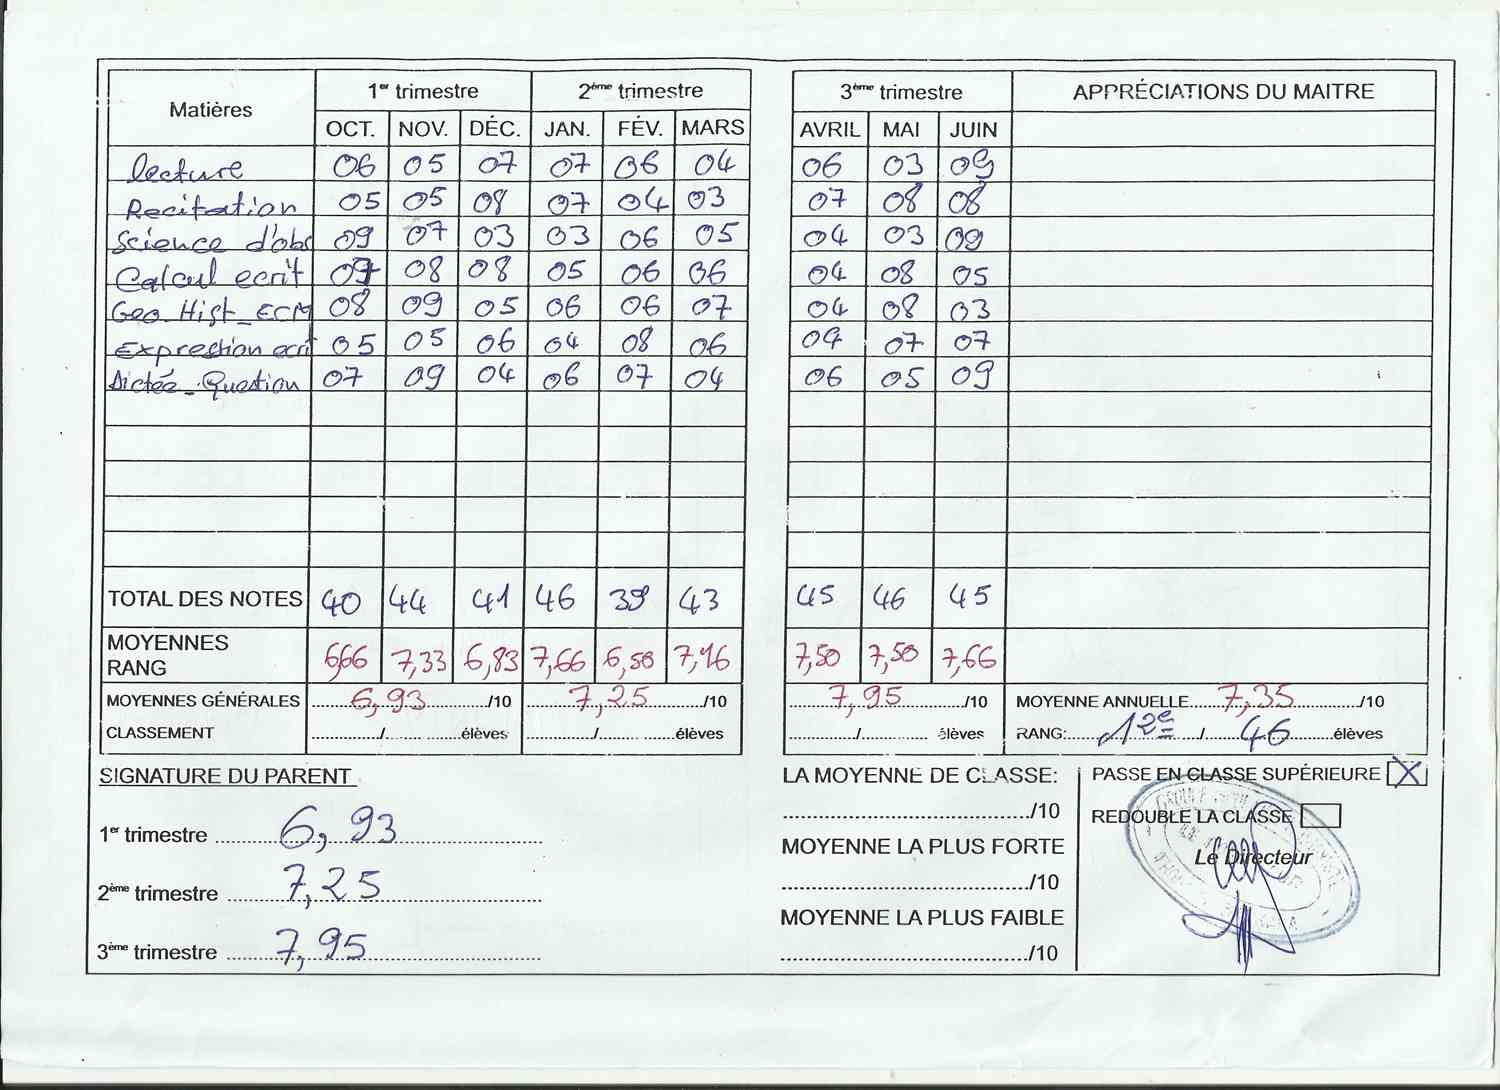 Matières 1er trimestre 2ème trimestre 3ème trimestre APPRÉCIATIONS DU MAITRE
OCT. NOV. DÉC. JAN. FÉV. MARS AVRIL MAI JUIN
lecture 06 05 07 07 06 04 06 03 09
Recitation 05 05 08 07 04 03 07 08 08
Science d'obs 09 07 03 03 06 05 04 03 09
Calcul ecrit 08 08 05 06 06 04 08 05
Geo_Hist_ECM 08 09 05 06 06 07 04 08 03
Expression ecrit 05 05 06 04 08 06 07 07
Dictée_Question 07 09 04 06 07 04 06 05 09
TOTAL DES NOTES 40 44 41 46 39 43 45 46 45
MOYENNES
RANG 6,66 7,33 6,83 7,66 6,50 7,16 7,50 7,50 7,66
MOYENNES GÉNÉRALES 6,93 /10 7,25 /10 7,95 /10 MOYENNE ANNUELLE 7,35 /10
CLASSEMENT / élèves / élèves / élèves RANG: 12e / 46 élèves
SIGNATURE DU PARENT
1er trimestre 6,93
2ème trimestre 7,25
3ème trimestre 7,95
LA MOYENNE DE CLASSE:
/10
MOYENNE LA PLUS FORTE
/10
MOYENNE LA PLUS FAIBLE
/10
PASSE EN CLASSE SUPÉRIEURE X
REDOUBLE LA CLASSE
Le Directeur